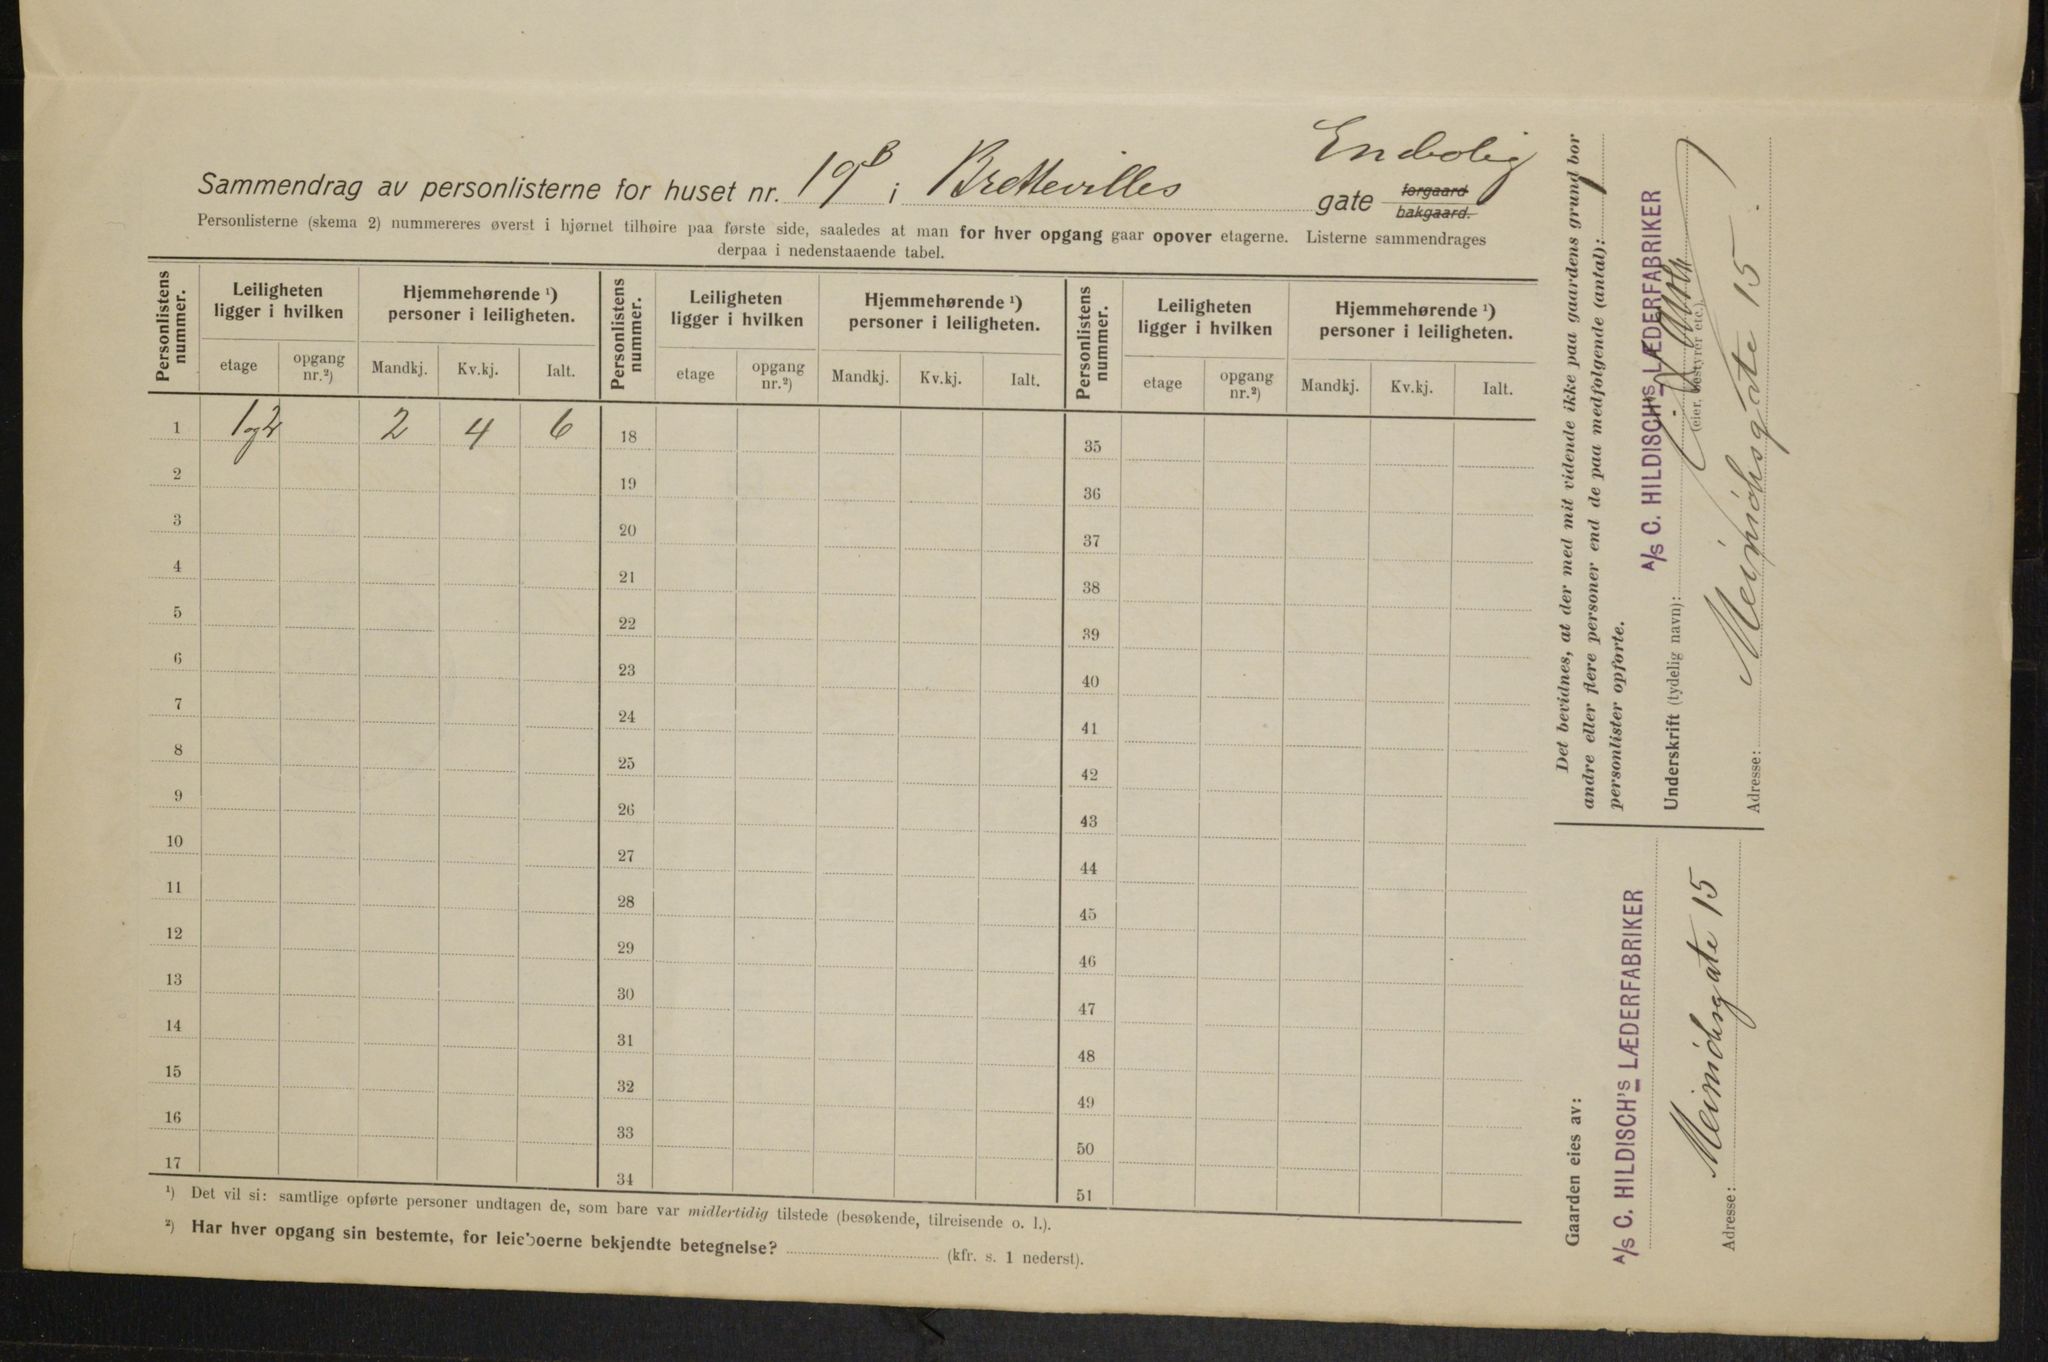 Enebolig
Sammendrag av personlisterne for huset nr. 19B i Brettevilles gate forgaard bakgaard.
Personlisterne (skema 2) nummereres øverst i hjørnet tilhøire paa første side, saaledes at man for hver opgang gaar opover etagerne. Listerne sammendrages
derpaa i nedenstaaende tabel.
Personlistens nummer. Leiligheten ligger i hvilken Hjemmehørende ¹) personer i leiligheten. Personlistens nummer. Leiligheten ligger i hvilken Hjemmehørende ¹) personer i leiligheten. Personlistens nummer. Leiligheten ligger i hvilken Hjemmehørende ¹) personer i leiligheten.
etage opgang nr.²) Mandkj. Kv.kj. Ialt. etage opgang nr.²) Mandkj. Kv.kj. Ialt. etage opgang nr.²) Mandkj. Kv.kj. Ialt.
1 1og2 2 4 6 18 35
2 19 36
3 20 37
4 21 38
5 22 39
6 23 40
7 24 41
8 25 42
9 26 43
10 27 44
11 28 45
12 29 46
13 30 47
14 31 48
15 32 49
16 33 50
17 34 51
¹) Det vil si: samtlige opførte personer undtagen de, som bare var midlertidig tilstede (besøkende, tilreisende o. l.).
²) Har hver opgang sin bestemte, for leieboerne bekjendte betegnelse? (kfr. s. 1 nederst).
Det bevidnes, at der med mit vidende ikke paa gaardens grund bor
andre eller flere personer end de paa medfølgende (antal): 1
personlister opførte.
A/S C. HILDISCH'S LÆDERFABRIKER
Underskrift (tydelig navn):
(eier, bestyrer etc.).
Adresse: Meinichsgate 15.
Gaarden eies av:
A/S C. HILDISCH'S LÆDERFABRIKER
Adresse: Meinichsgate 15